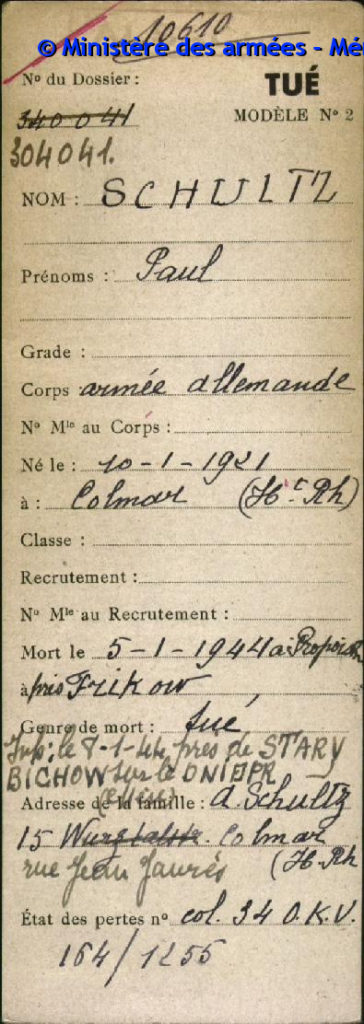 10610
© Ministère des armées - Mé
No du Dossier :
TUÉ
340041
MODÈLE No 2
304041.
NOM : SCHULTZ
Prénoms : Paul
Grade :
Corps armée allemande
No Mle au Corps :
Né le : 10-1-1921
à : Colmar (Ht Rh)
Classe :
Recrutement :
No Mle au Recrutement :
Mort le 5-1-1944 à
à près
Genre de mort : tué
le 8-1-44 près de STARY
BICHOW sur le DNIEPR
Adresse de la famille : A. Schultz
15 Colmar
rue Jean Jaurès (H-Rh
État des pertes no col. 34 O.K.V.
164/1255